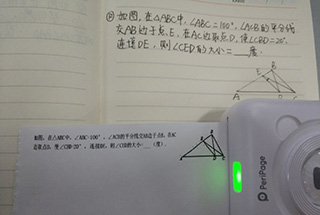 ⑭ 如图,在△ABC中,∠ABC=100°,∠ACB的平分线
交AB边于点E,在AC边取点D,使∠CBD=20°,
连接DE,则∠CED的大小=___度.
A B C D E
如图,在△ABC中,∠ABC=100°,∠ACB的平分线交AB边于点E,在AC
边取点D,使∠CBD=20°,连接DE,则∠CED的大小=___(度).
PeriPage